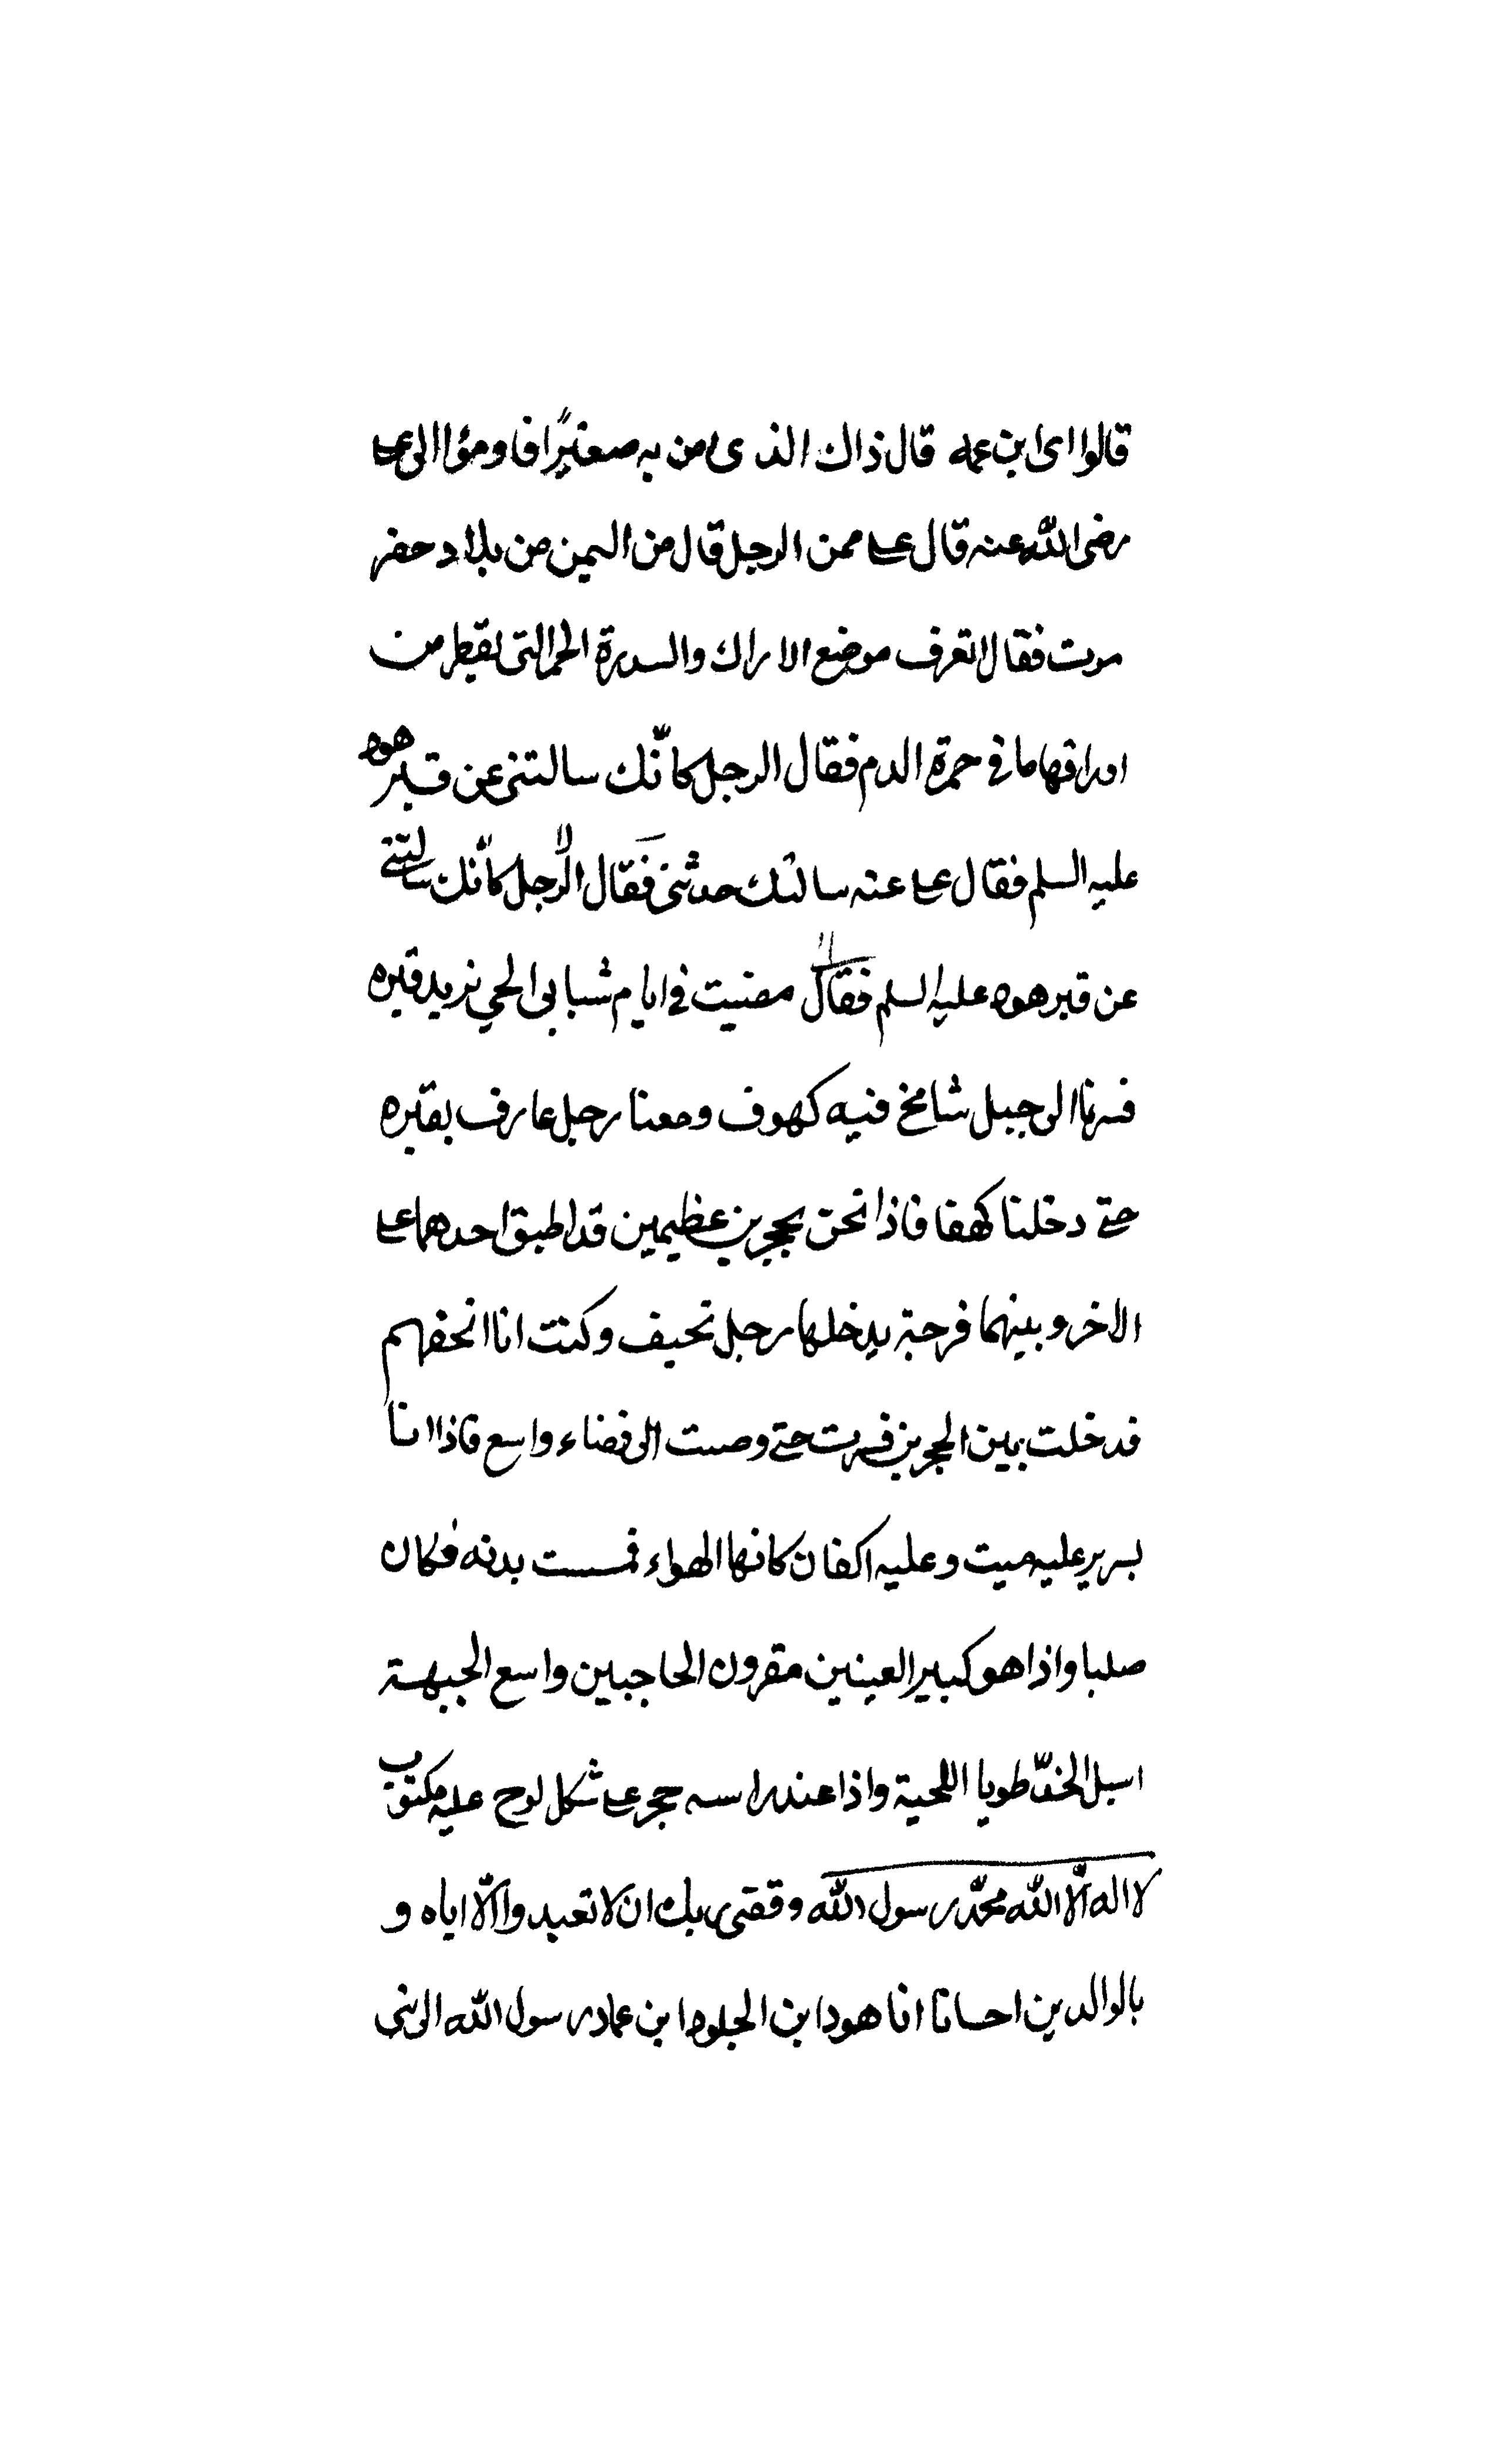 قالوا اى ابن عمه قال ذاك الذى امن به صغيرًا فاومؤا الى على
رضى الله عنه قال على ممن الرجل قال من اليمن من بلاد حضر
موت فقال اتعرف موضع الاراك والسدرة الحمر التى تقطر من
اوراقها ما فى حمرة الدم فقال الرجل كانّك سالتنى عن قبر هود
عليه السلم فقال على عنه سالتك حدثنى فقال الرجل كانّك سالتنى
عن قبر هود عليه السلم فقال مضيت فى ايام شبابى الحي نريد قبره
فسرنا الى جبل شامخ فيه كهوف ومعنا رجل عارف بقبره
حتى دخلنا كهفا فاذا نحن بحجرين عظيمين قد اطبق احدهما على
الاخر وبينهما فرجة يدخلها رجل نحيف وكنت انا انحفهم
فدخلت بين الحجرين فسرت حتى وصلت الى فضاء واسع فاذا انا
بسرير عليه ميت وعليه اكفان كانها الهواء فمسست بدنه فكان
صلبا واذا هو كبير العينين مقرون الحاجبين واسع الجبهة
اسيل الخدّ طويل اللحية واذا عند راسه حجر على شكل لوح عليه مكتوب
لا اله الّا الله محمّد رسول الله وقضى ربك ان لا تعبدوا الّا اياه و
بالوالدين احسانا انا هود ابن الخلود ابن عماد رسول الله الى بنى